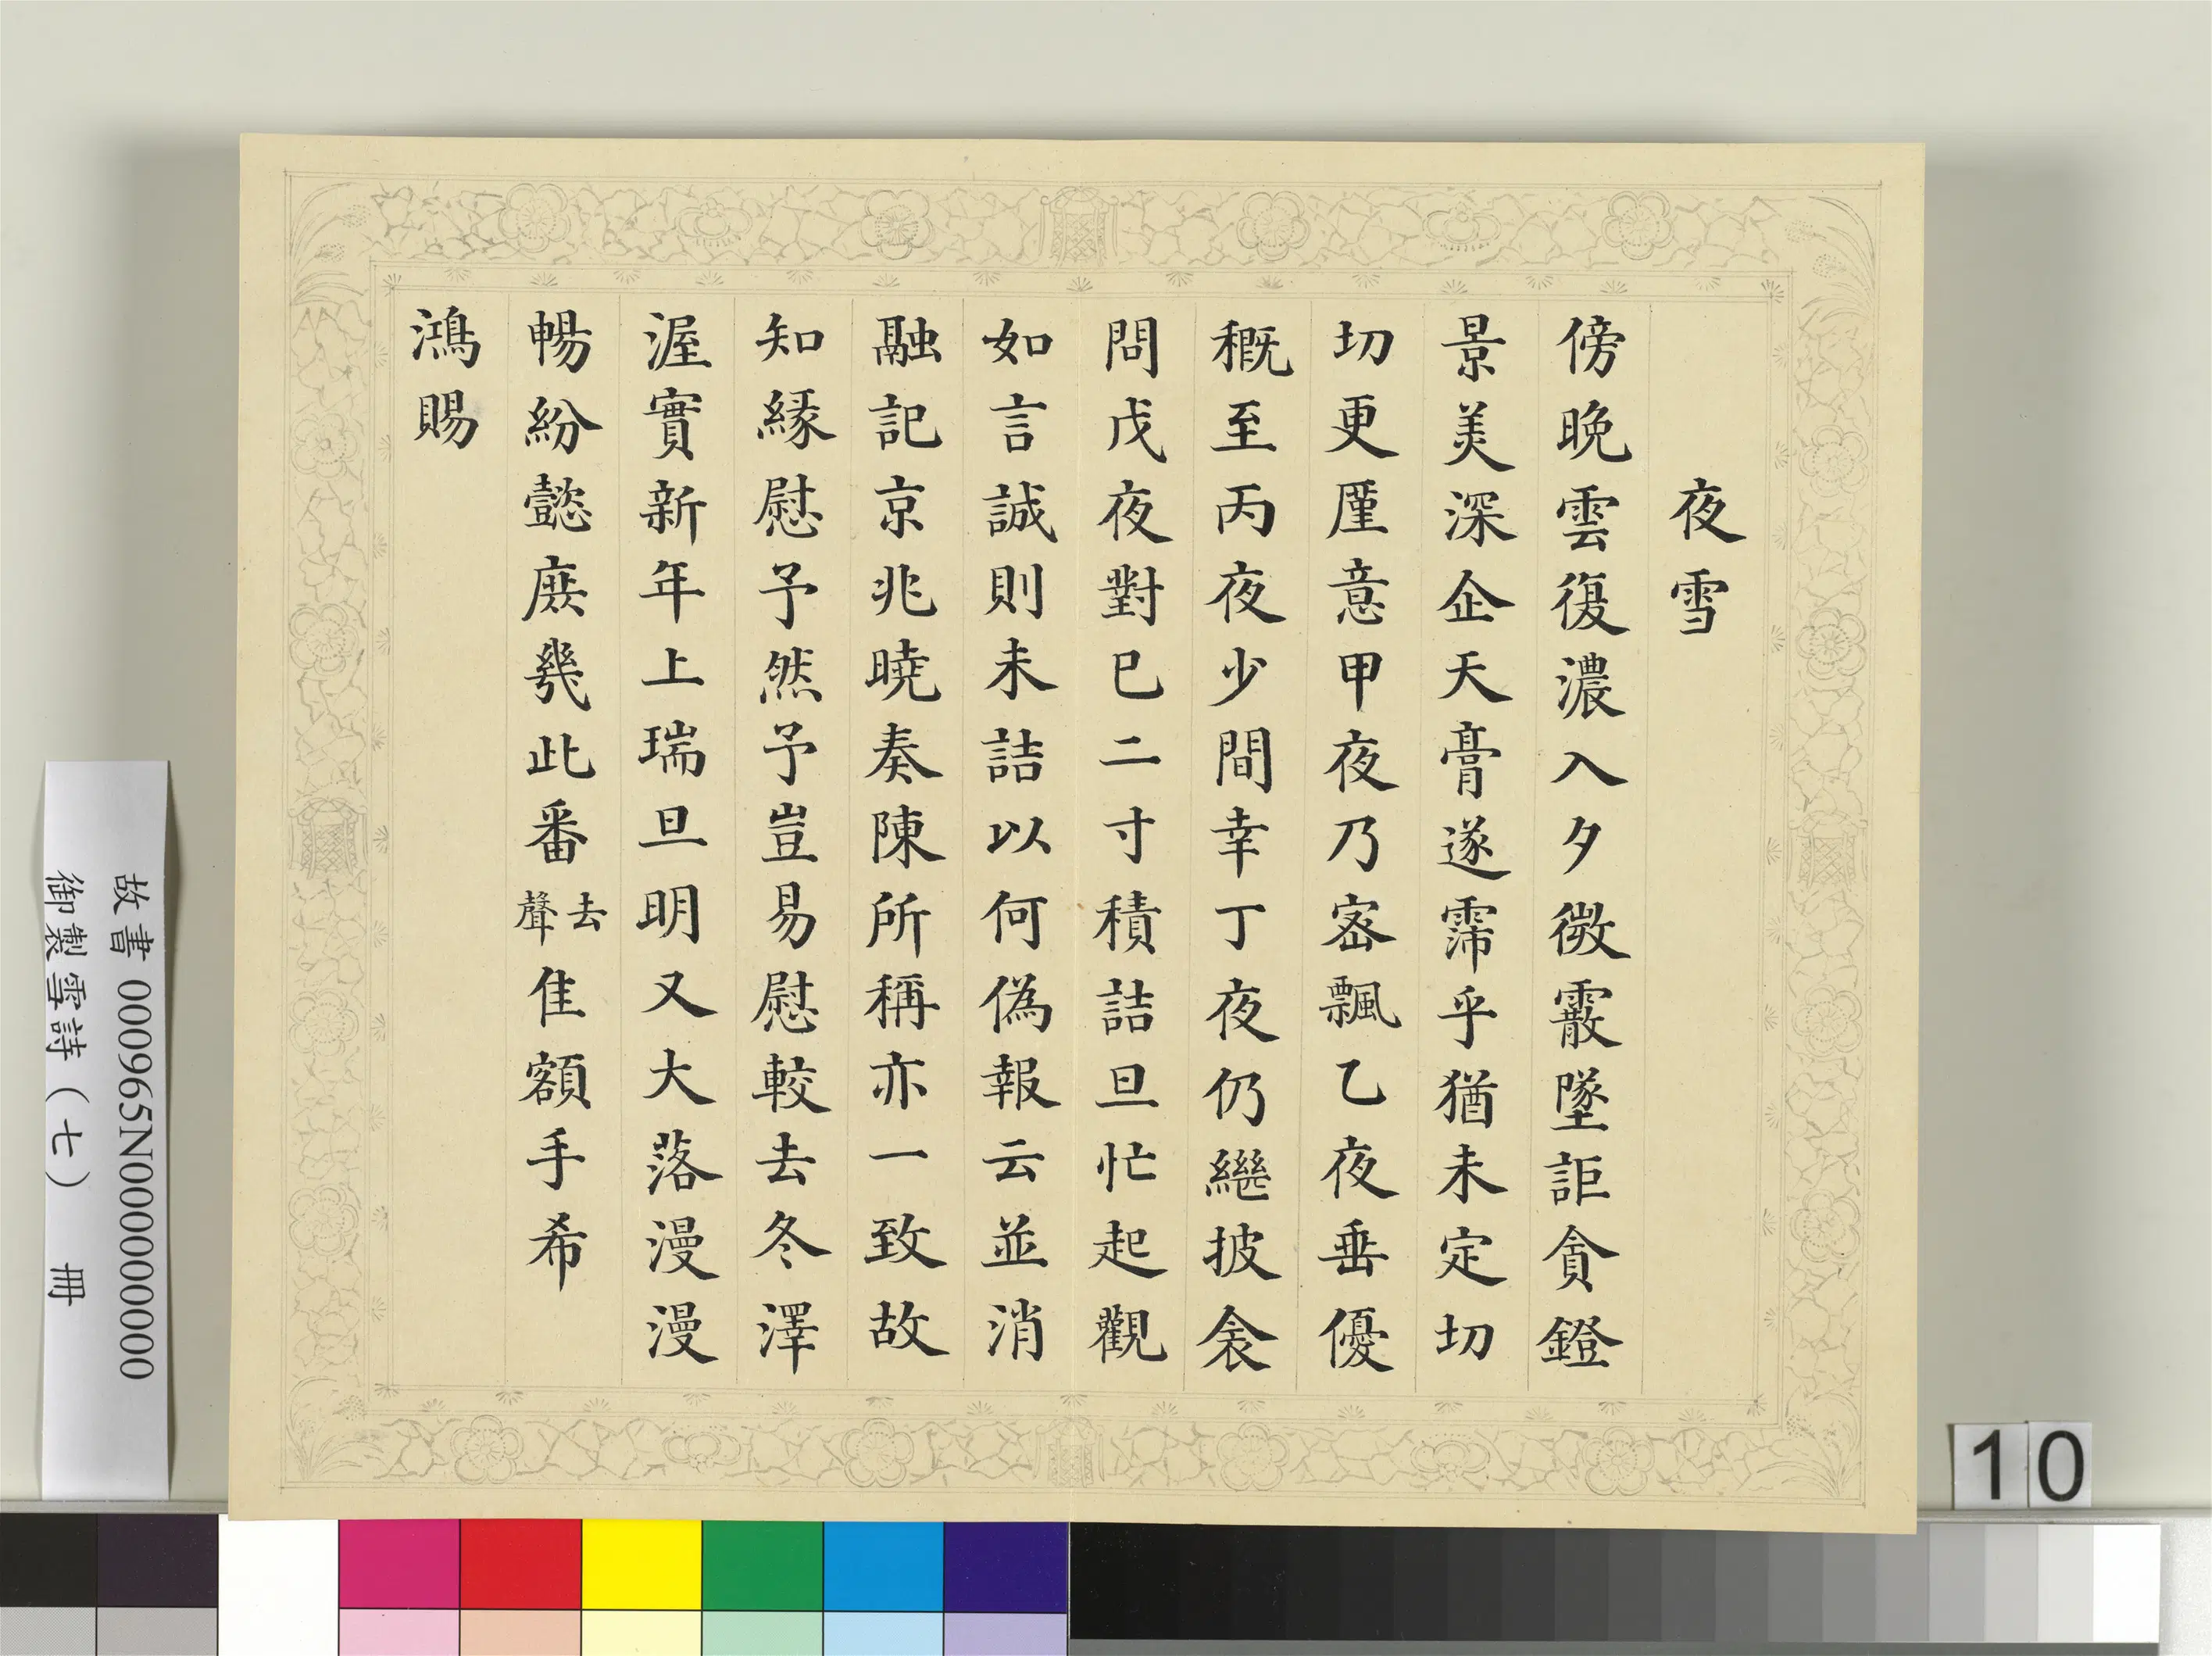 夜雪
傍晚雲復濃入夕微霰墜詎貪鐙
景美深企天膏遂霈乎猶未定切
切更厪意甲夜乃密飄乙夜垂優
穊至丙夜少間幸丁夜仍繼披衾
問戊夜對巳二寸積詰旦忙起觀
如言誠則未詰以何偽報云並消
融記京兆曉奏陳所稱亦一致故
知緣慰予然予豈易慰較去冬澤
渥實新年上瑞旦明又大落漫漫
暢紛懿庶幾此番去聲隹額手希
鴻賜
故書 000965N000000000
御製雪詩（七） 冊
10